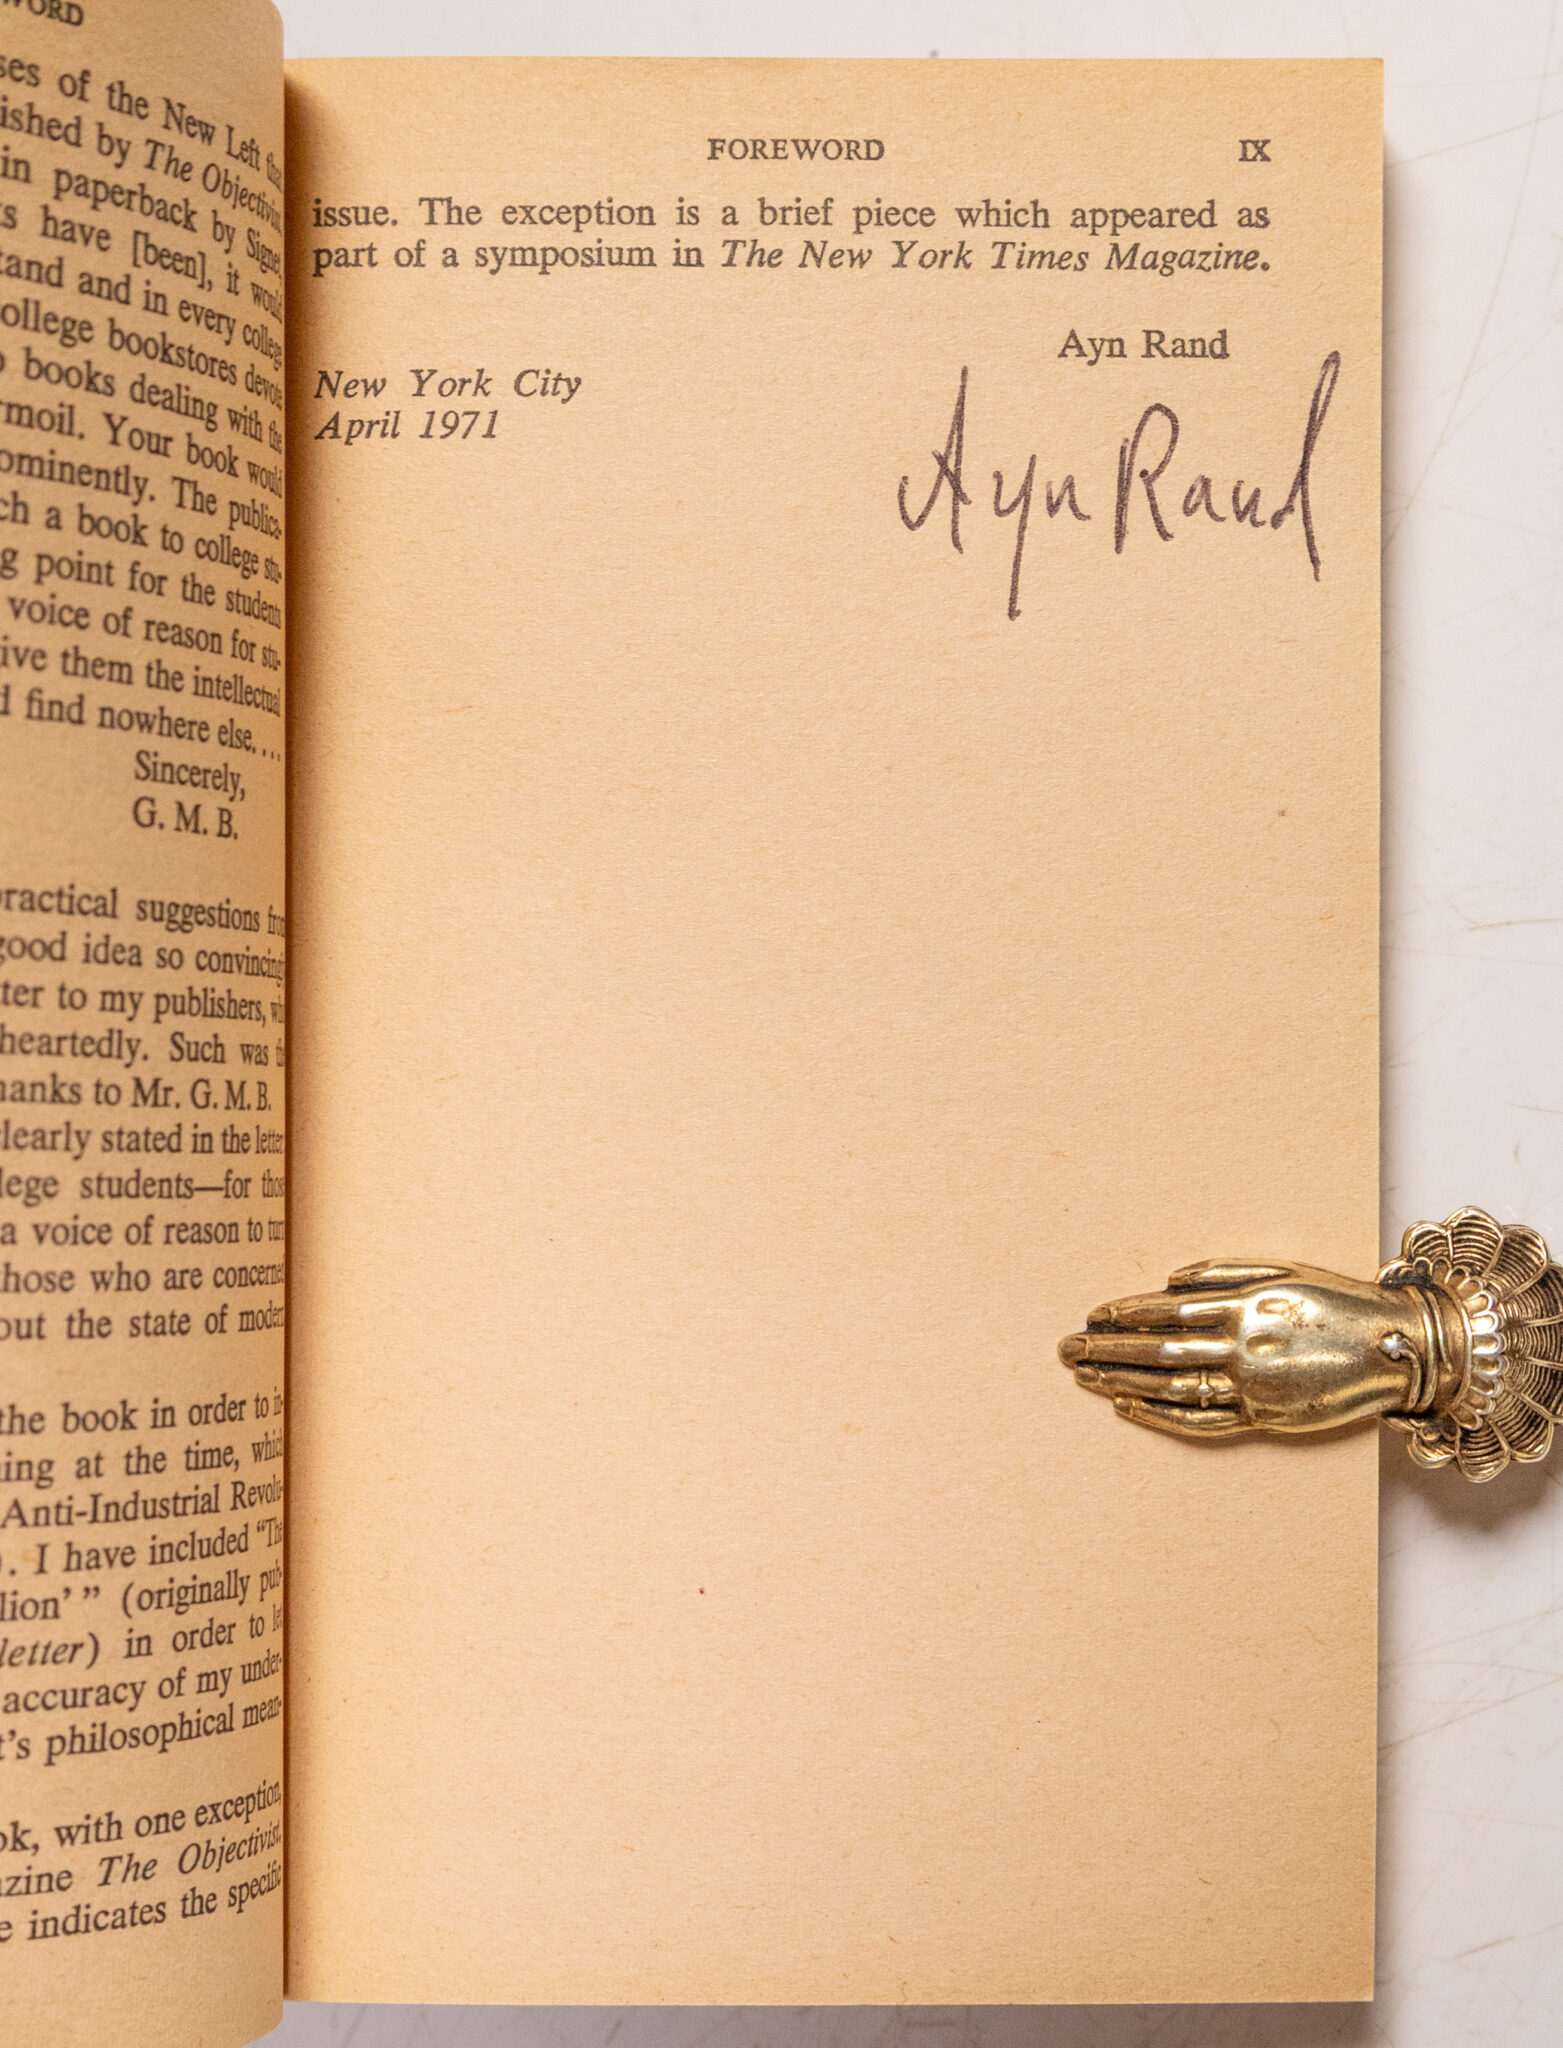 of the New Left
by The Objectivist
in paperback by Signet,
have [been], it would
and in every college
bookstores devote
books dealing with the
Your book would
The publica-
a book to college stu-
point for the students
voice of reason for stu-
them the intellectual
find nowhere else....
Sincerely,
G. M. B.
practical suggestions
good idea so convincingly
to my publishers,
Such was
to Mr. G. M. B.
clearly stated in the letter
students—for
a voice of reason to turn
those who are concerned
the state of modern
the book in order to in-
at the time, which
Anti-Industrial Revolu-
. I have included “The
” (originally pub-
) in order to let
accuracy of my under-
philosophical mean-
with one exception,
The Objectivist.
indicates the specific
FOREWORD IX
issue. The exception is a brief piece which appeared as
part of a symposium in The New York Times Magazine.
Ayn Rand
New York City
April 1971
Ayn Rand